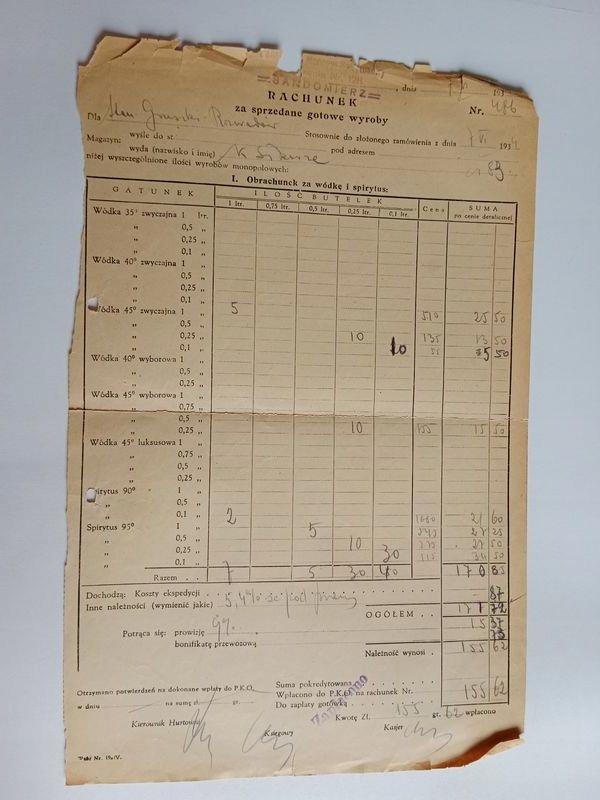 =SANDOMIERZ=
RACHUNEK
, dnia 193
za sprzedane gotowe wyroby
Nr. 486
Dla Rozwadów
Stosownie do złożonego zamówienia z dnia 7 VI 1934
Magazyn: wyśle do st.
pod adresem
wyda (nazwisko i imię)
niżej wyszczególnione ilości wyrobów monopolowych: 83
I. Obrachunek za wódkę i spirytus:
GATUNEK ILOŚĆ BUTELEK Cena SUMA
1 ltr. 0,75 ltr. 0,5 ltr. 0,25 ltr. 0,1 ltr. po cenie detalicznej
Wódka 35° zwyczajna 1 ltr.
„ 0,5 „
„ 0,25 „
„ 0,1 „
Wódka 40° zwyczajna 1 „
„ 0,5 „
„ 0,25 „
„ 0,1 „
Wódka 45° zwyczajna 1 „ 5 510 25 50
„ 0,5 „
„ 0,25 „ 10 135 13 50
„ 0,1 „ 10 55 5 50
Wódka 40° wyborowa 1 „
„ 0,5 „
„ 0,25 „
Wódka 45° wyborowa 1 „
„ 0,75 „
„ 0,5 „
„ 0,25 „ 10 155 15 50
Wódka 45° luksusowa 1 „
„ 0,75 „
„ 0,5 „
„ 0,25 „
Spirytus 90° 1 „
„ 0,5 „
„ 0,1 „
Spirytus 95° 1 „ 2 21 60
„ 0,5 „ 5 27 25
„ 0,25 „ 10 27 50
„ 0,1 „ 30 34 50
Razem . . 7 5 30 40 170 85
Dochodzą: Koszty ekspedycji . . . 87
Inne należności (wymienić jakie) 5,4% 171 72
OGÓŁEM . .
Potrąca się: prowizję 9% 15 37
bonifikatę przewozową 73
Należność wynosi . 155 62
Suma pokredytowana
Otrzymano potwierdzeń na dokonane wpłaty do P.K.O.
Wpłacono do P.K.O. na rachunek Nr.
w dniu na sumę zł. gr.
Do zapłaty gotówką 155 62
Kwotę Zł. 155 gr. 62 wpłacono
Kierownik Hurtowni Księgowy Kasjer